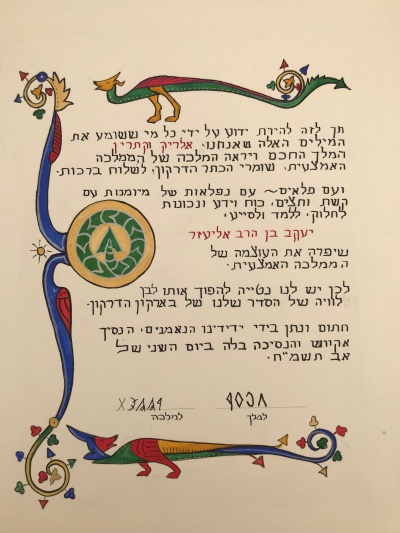 תן לזה להיות ידוע על ידי כל מי ששומע את
המילים האלה שאנחנו, אלריק וקתרין
המלך החכם ויראה המלכה של הממלכה
האמצעית, שומרי הכתר הדרקון, לשלוח ברכות.
ועם פלאים~ עם נפלאות של מיומנות עם
קשת וחצים, כוח וידע ונכונות
לחלוק, ללמד ולסייע,
יעקב בן הרב אליעזר
שיפרה את העוצמה של
הממלכה האמצעית.
לכן יש לנו נטייה להפוך אותו לבן
לוויה של הסדר שלנו של בארקון הדרקון.
חתום ונתן בידי ידידינו הנאמנים, הנסיך
אקווש והנסיכה בלה ביום השני של
אב תשמ"ח.
למלך
למלכה